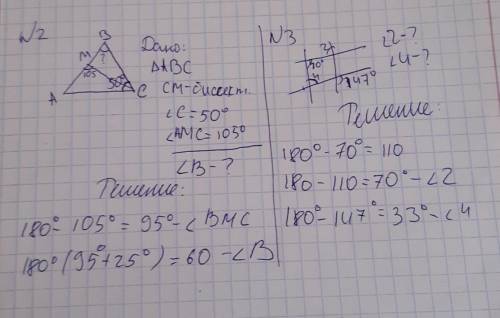 №2
B
?
M
105
50°
A
C
Дано:
ΔABC
CM-бисект.
∠C=50°
∠AMC=105°
∠B-?
Решение:
180°-105°=95°-∠BMC
180°(95°+25°)=60-∠B
№3
147°
∠2-?
∠4-?
Решение:
180°-70°=110
180-110=70°-∠2
180°-147°=33°-∠4